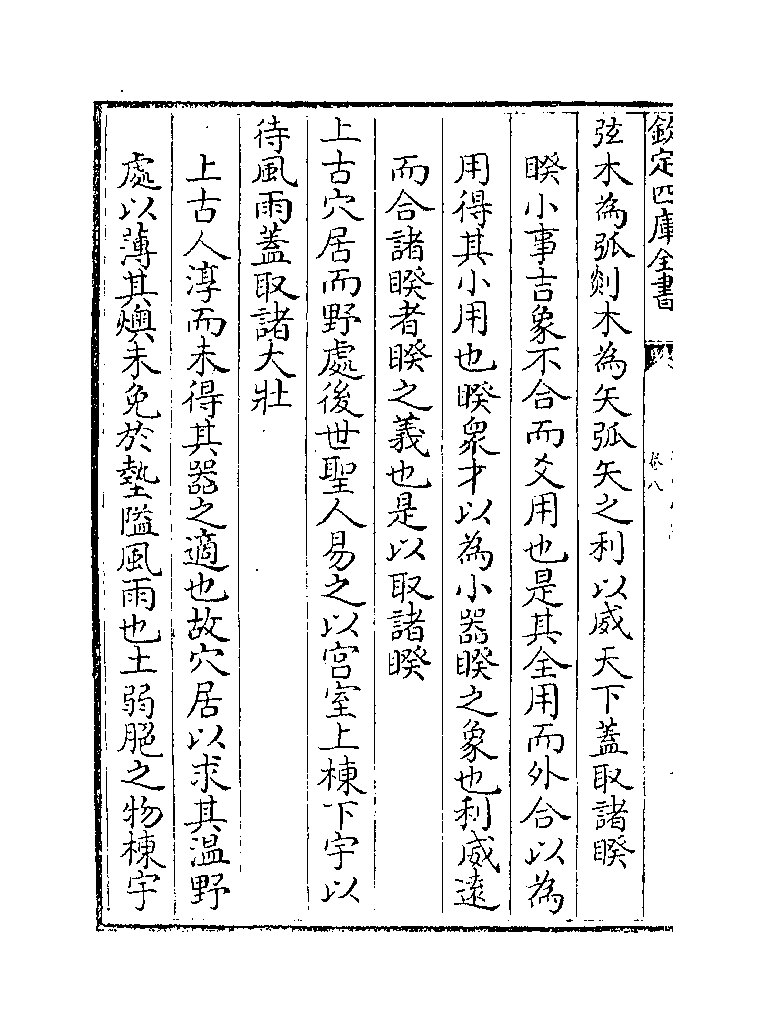 欽定四庫全書
卷八
弦木為弧剡木為矢弧矢之利以威天下蓋取諸睽
睽小事吉象不合而爻用也是其全用而外合以為
用得其小用也睽衆才以為小器睽之象也利威遠
而合諸睽者睽之義也是以取諸睽
上古穴居而野處後世聖人易之以宫室上棟下宇以
待風雨蓋取諸大壯
上古人淳而未得其器之適也故穴居以求其温野
處以薄其燠未免於墊隘風雨也土弱脆之物棟宇